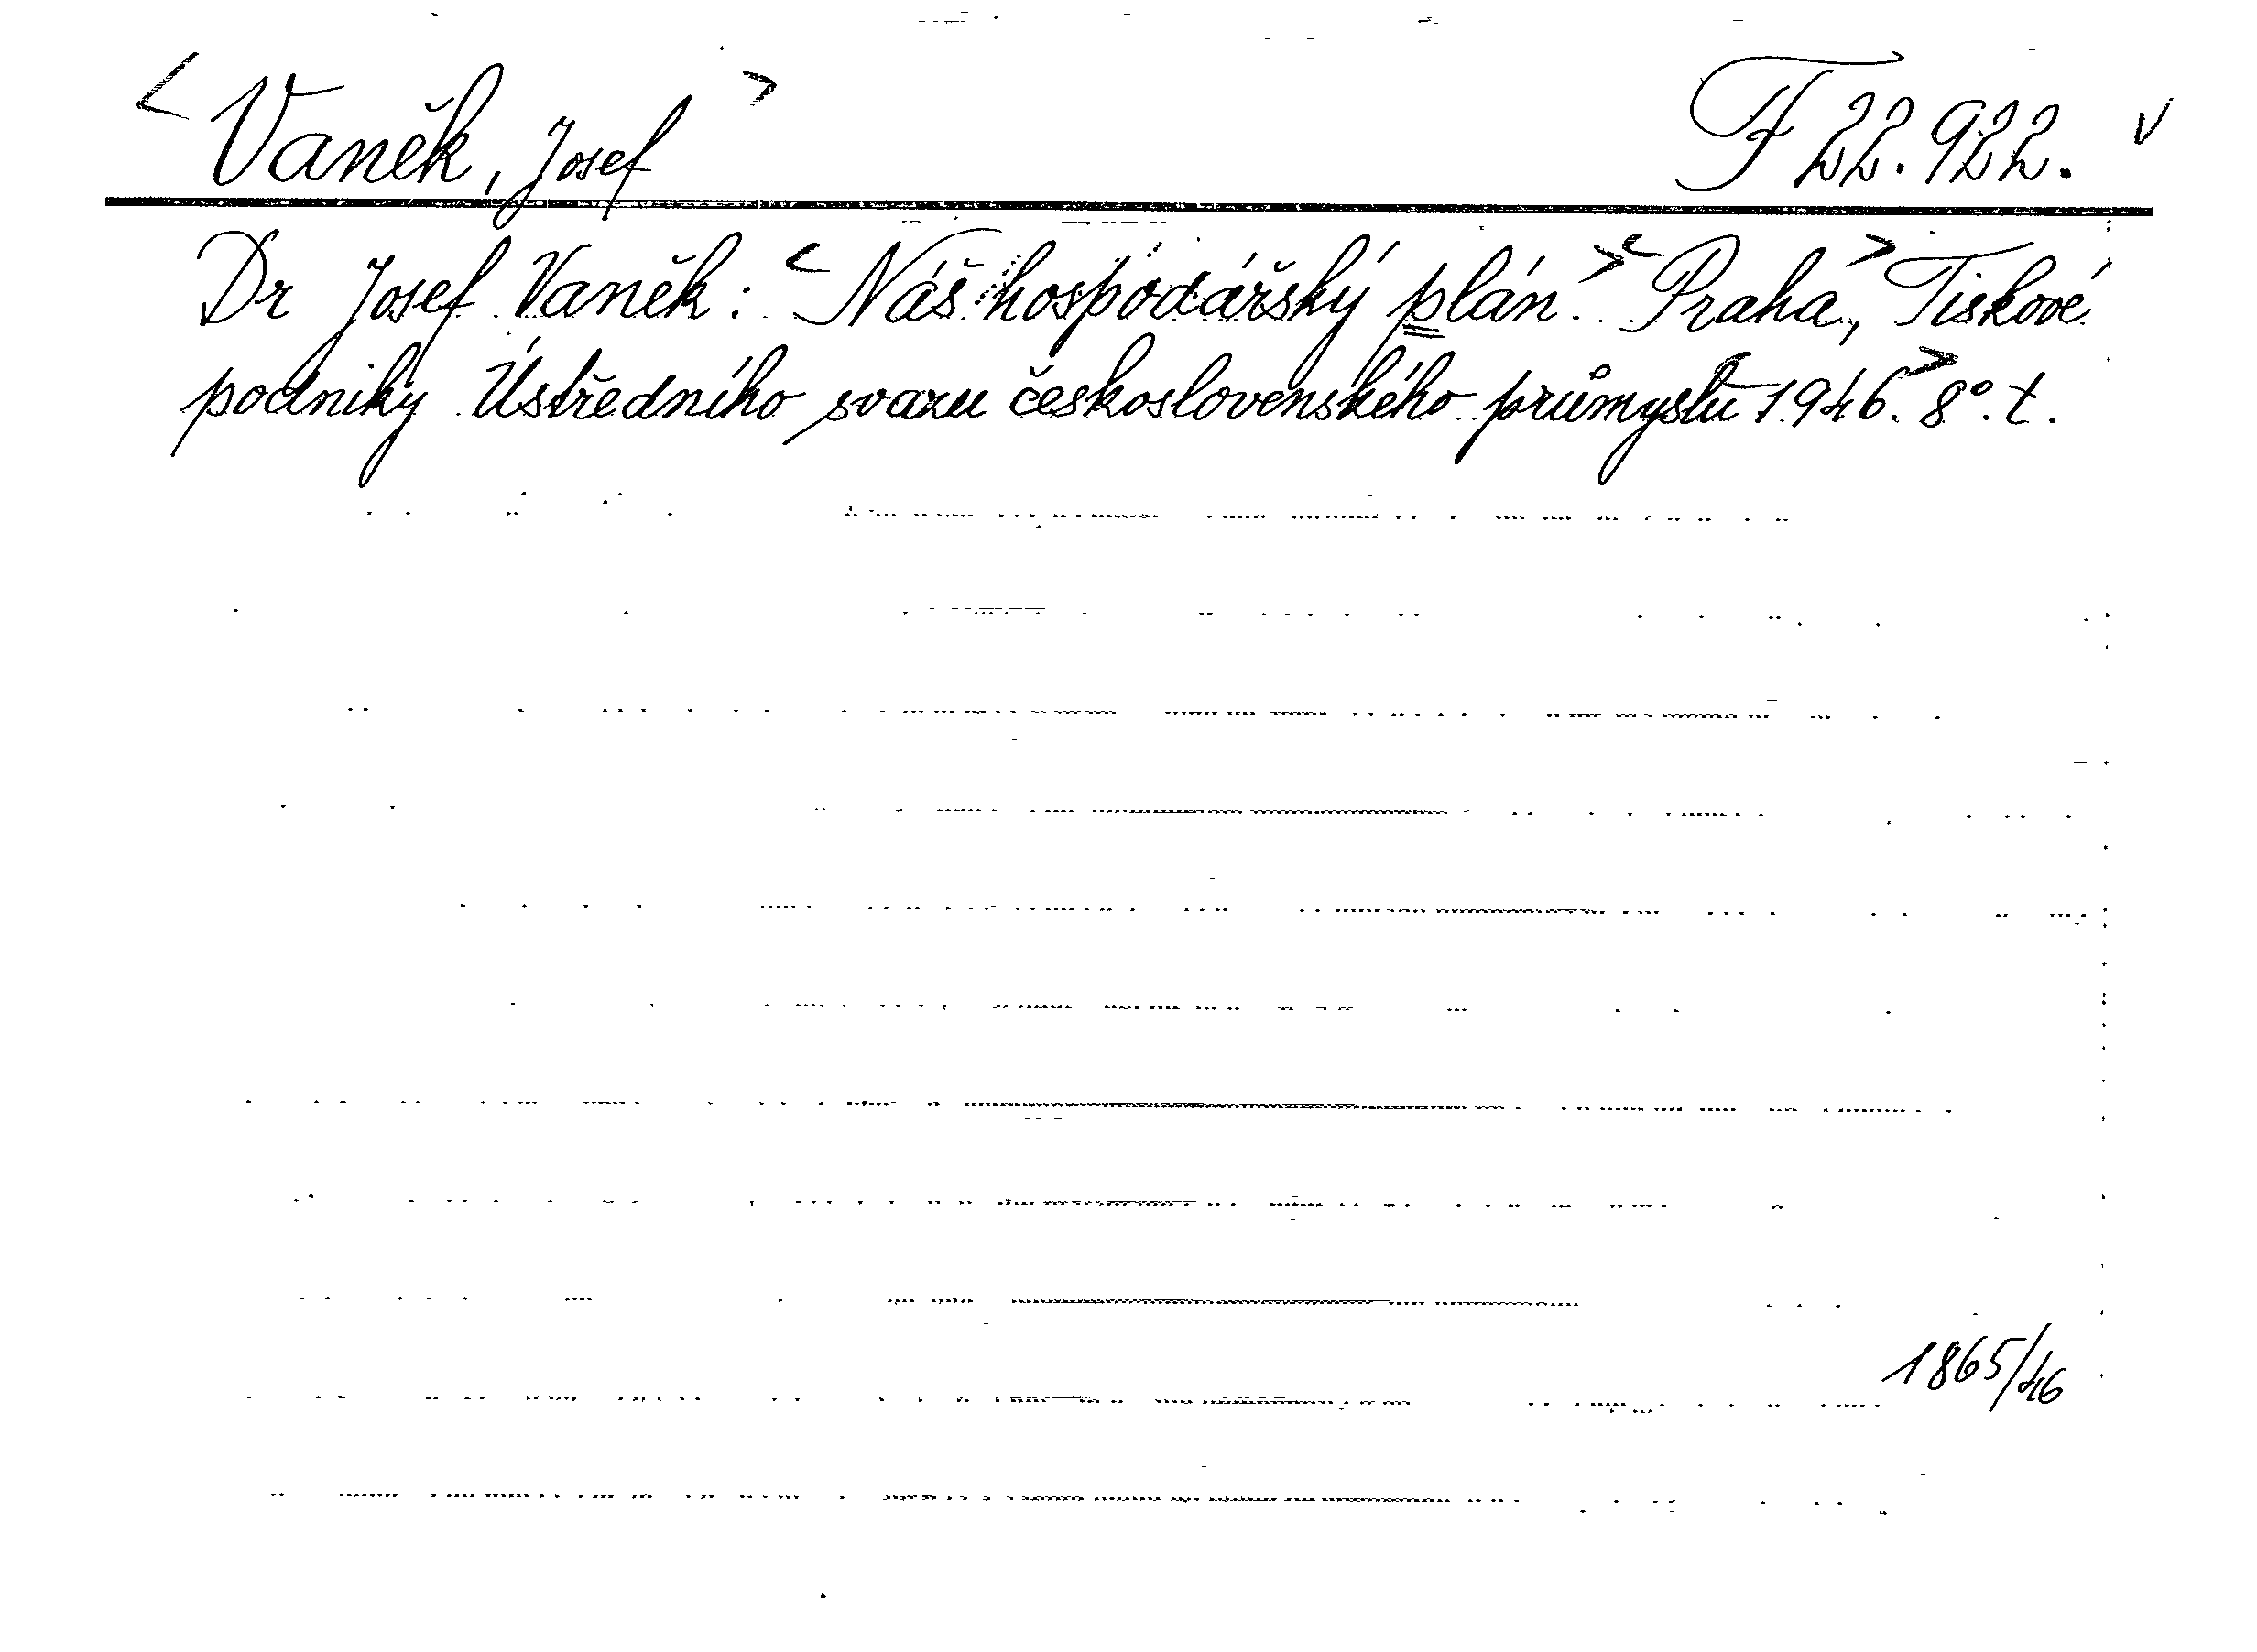 <Vaněk, Josef> F 22.922. v
Dr Josef Vaněk: <Náš hospodářský plán.> <Praha,> Tiskové
podniky Ústředního svazu československého průmyslu <1946.> 8°. t.
1865/46